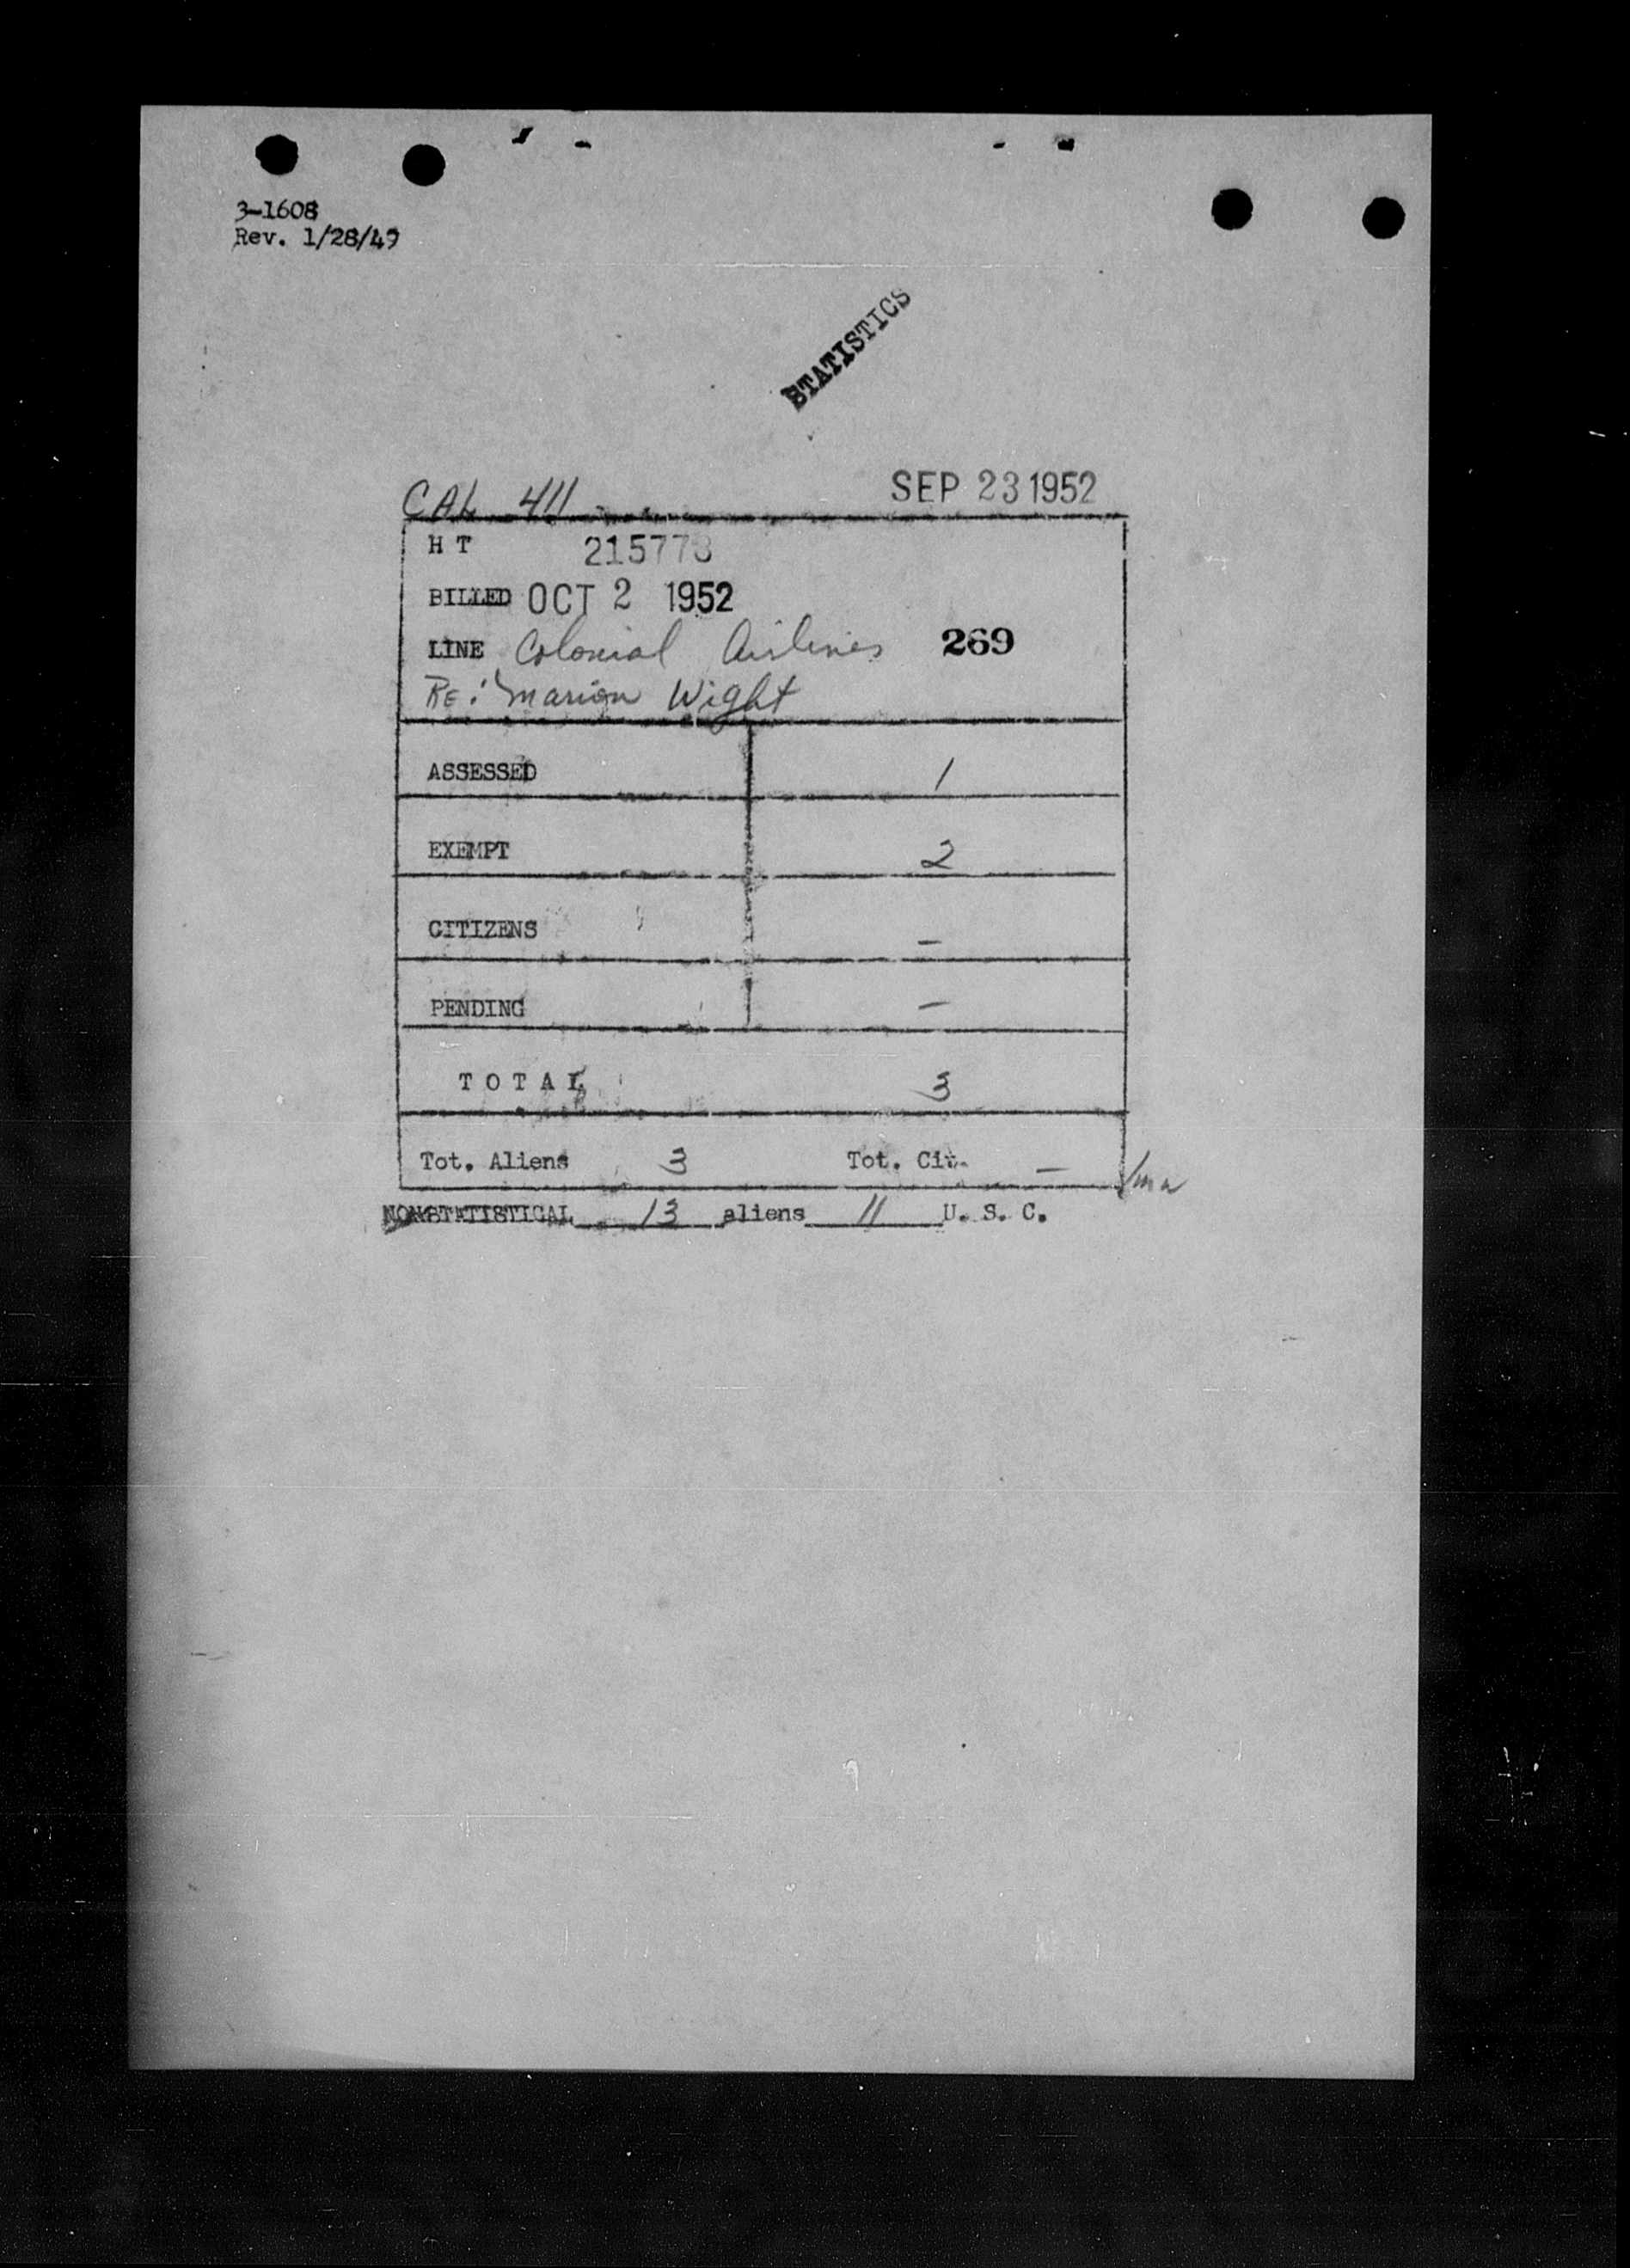 3-1608
Rev. 1/28/49
STATISTICS
CAL 411 SEP 23 1952
H T 215778
BILLED OCT 2 1952
LINE Colonial Airlines 269
RE: Marion Wight
ASSESSED 1
EXEMPT 2
CITIZENS –
PENDING –
T O T A L 3
Tot. Aliens 3 Tot. Cit. –
NONSTATISTICAL 13 aliens 11 U. S. C.